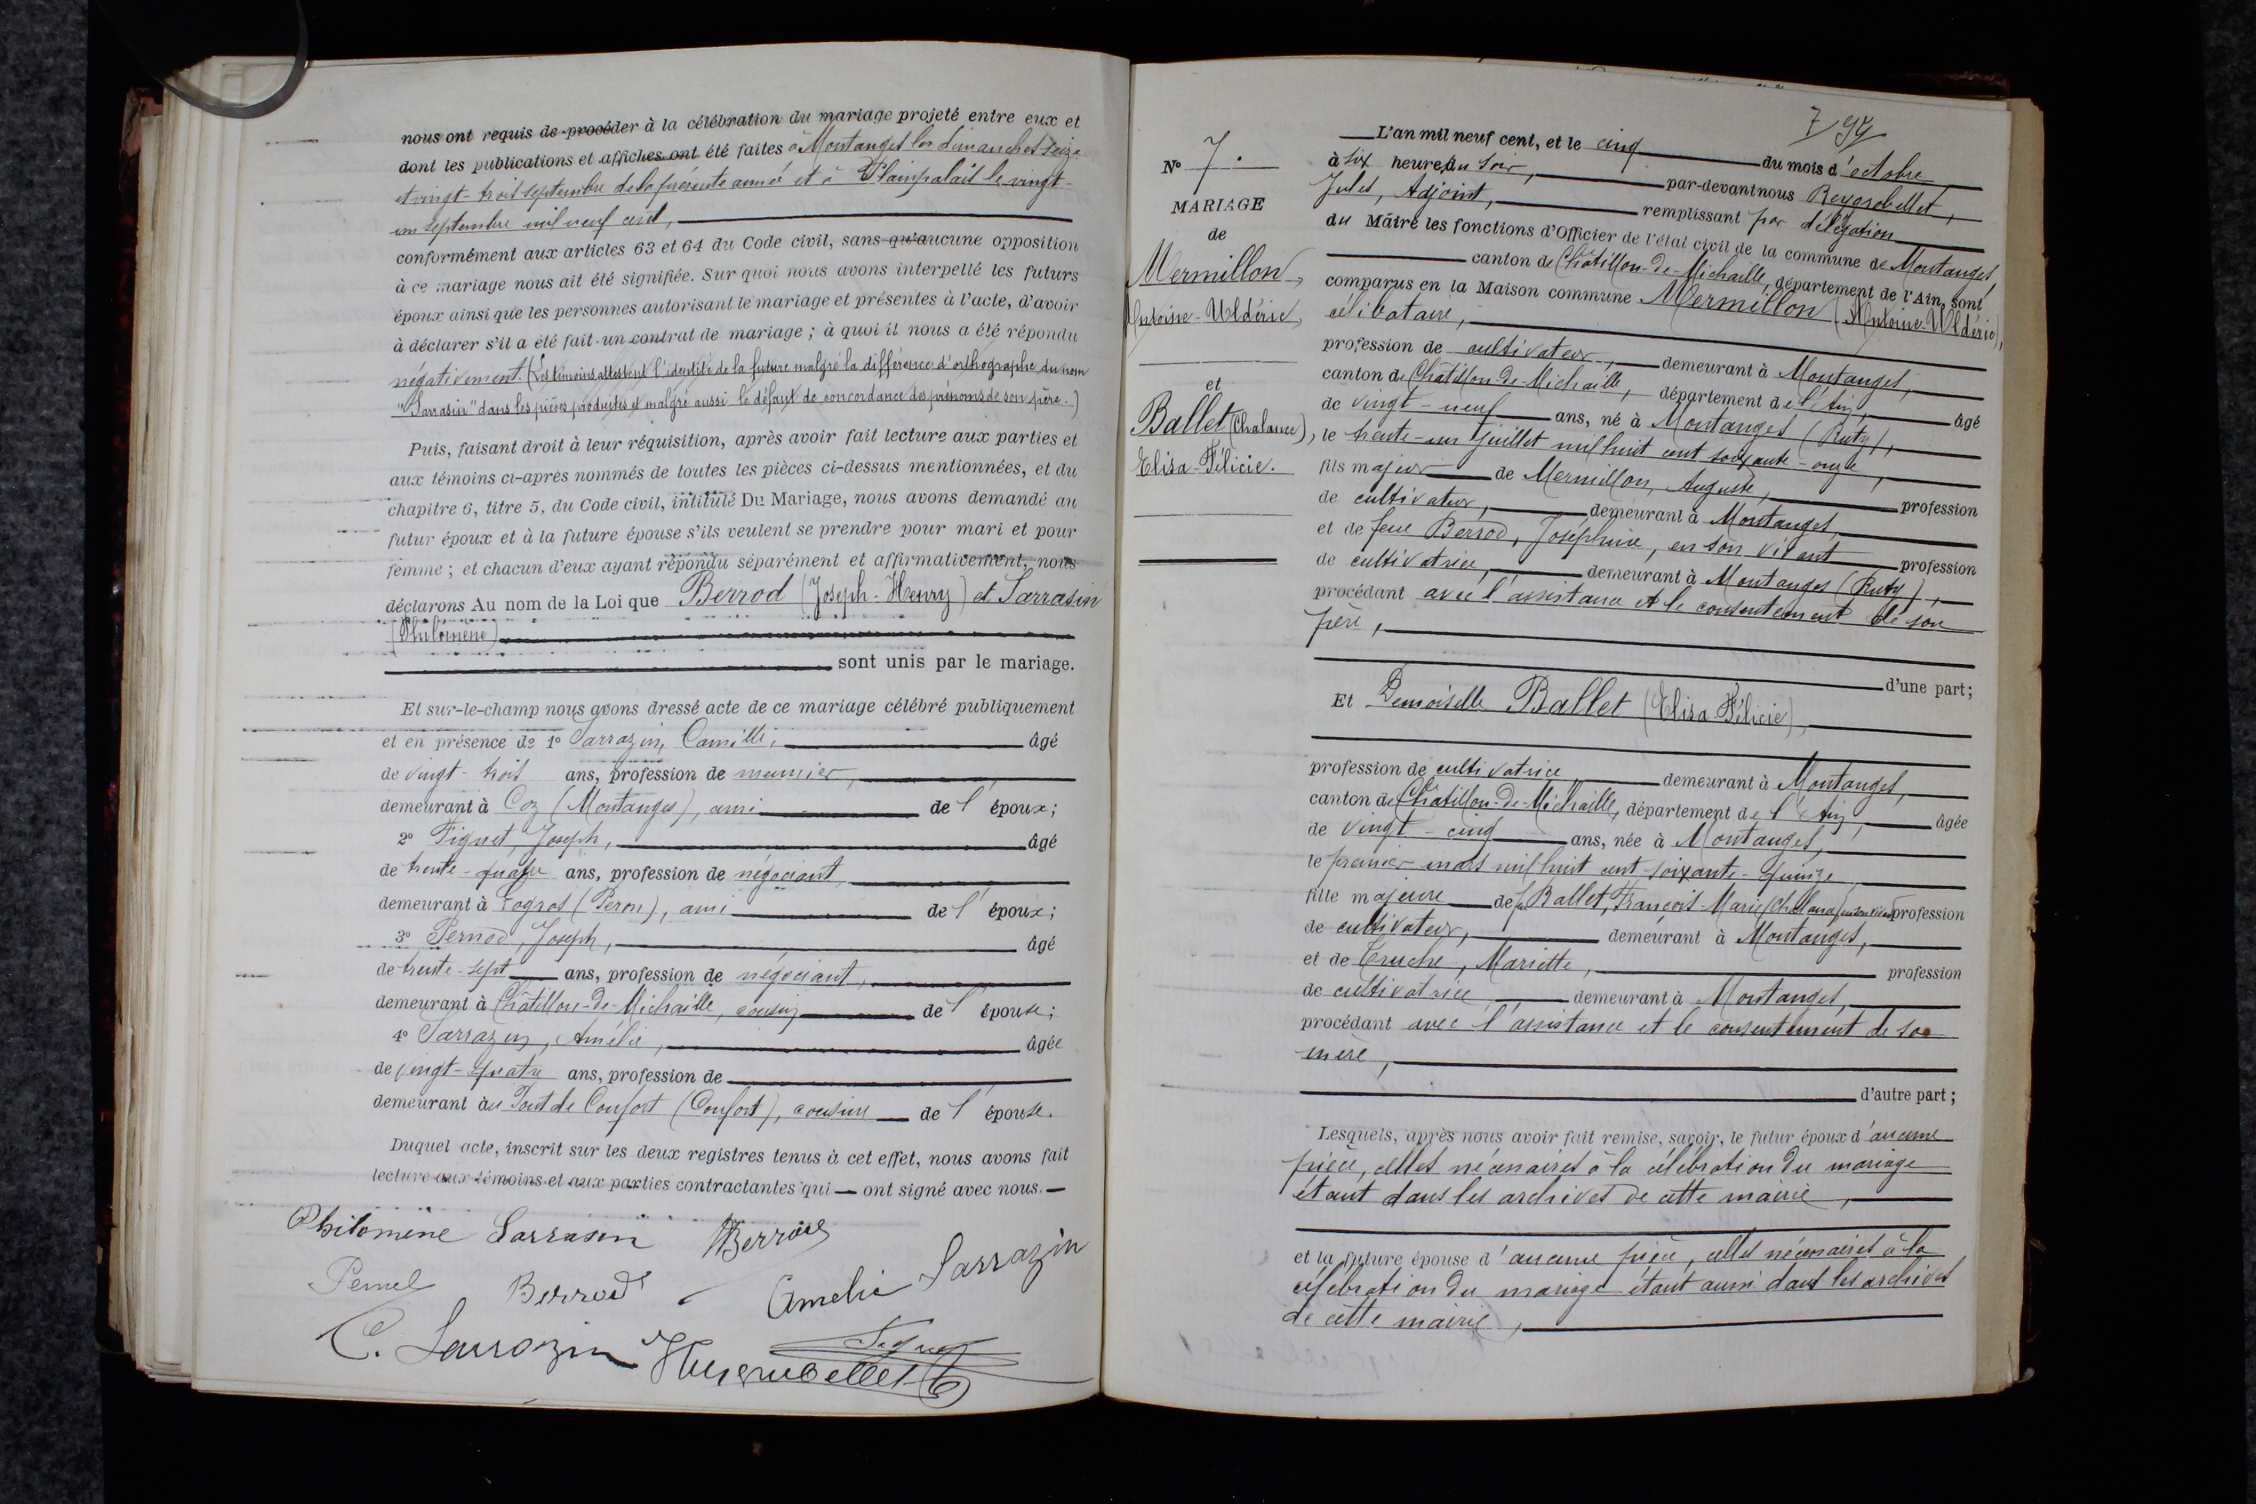 nous ont requis de procéder à la célébration du mariage projeté entre eux et
dont les publications et affiches ont été faites à Montanges les dimanches seize
et vingt-trois septembre de la présente année et à Plainpalais le vingt-
un septembre mil neuf cent,
conformément aux articles 63 et 64 du Code civil, sans qu'aucune opposition
à ce mariage nous ait été signifiée. Sur quoi nous avons interpellé les futurs
époux ainsi que les personnes autorisant le mariage et présentes à l'acte, d'avoir
à déclarer s'il a été fait un contrat de mariage ; à quoi il nous a été répondu
négativement. (Les témoins attestent l'identité de la future malgré la différence d'orthographe du nom
"Sarrasin" dans les pièces produites et malgré aussi le défaut de concordance des prénoms de son père.)
Puis, faisant droit à leur réquisition, après avoir fait lecture aux parties et
aux témoins ci-après nommés de toutes les pièces ci-dessus mentionnées, et du
chapitre 6, titre 5, du Code civil, intitulé Du Mariage, nous avons demandé au
futur époux et à la future épouse s'ils veulent se prendre pour mari et pour
femme ; et chacun d'eux ayant répondu séparément et affirmativement, nous
déclarons Au nom de la Loi que Berrod (Joseph-Henry) et Sarrasin
(Philomène)
sont unis par le mariage.
Et sur-le-champ nous avons dressé acte de ce mariage célébré publiquement
et en présence de 1° Sarrazin, Camille, âgé
de vingt-trois ans, profession de meunier,
demeurant à Coz (Montanges), ami de l'époux;
2° Tignet, Joseph, âgé
de trente-quatre ans, profession de négociant,
demeurant à Logras (Péron), ami de l'époux;
3° Pernod, Joseph, âgé
de trente-sept ans, profession de négociant,
demeurant à Châtillon-de-Michaille, cousin de l'épouse;
4° Sarrazin, Amélie, âgée
de vingt-quatre ans, profession de
demeurant au Pont de Confort (Confort), cousine de l'épouse.
Duquel acte, inscrit sur les deux registres tenus à cet effet, nous avons fait
lecture aux témoins et aux parties contractantes qui ont signé avec nous.
Philomène Sarrasin HBerrod
Berrod Amelie Sarrazin
C. Sarrazin
7 99
N° 7.
MARIAGE
de
Mermillon,
Antoine-Uldéric,
et
Ballet (Chalance),
Elisa-Félicie.
L'an mil neuf cent, et le cinq du mois d'octobre
à six heures du soir, par-devant nous Reygrobellet,
Jules, Adjoint, remplissant par délégation
du Maire les fonctions d'Officier de l'état civil de la commune de Montanges,
canton de Châtillon-de-Michaille, département de l'Ain, sont
comparus en la Maison commune Mermillon (Antoine-Uldéric),
célibataire,
profession de cultivateur, demeurant à Montanges,
canton de Châtillon-de-Michaille, département de l'Ain, âgé
de vingt-neuf ans, né à Montanges (Ruty),
le trente-un juillet mil huit cent soixante-onze,
fils majeur de Mermillon, Auguste, profession
de cultivateur, demeurant à Montanges,
et de feue Berrod, Joséphine, en son vivant profession
de cultivatrice, demeurant à Montanges (Ruty),
procédant avec l'assistance et le consentement de son
père,
d'une part;
Et Demoiselle Ballet (Elisa Félicie),
profession de cultivatrice, demeurant à Montanges,
canton de Châtillon-de-Michaille, département de l'Ain, âgée
de vingt-cinq ans, née à Montanges,
le premier mars mil huit cent soixante-quinze,
fille majeure de f. Ballet, François-Marie (Chalance) en son vivant profession
de cultivateur, demeurant à Montanges,
et de Truche, Mariette, profession
de cultivatrice, demeurant à Montanges,
procédant avec l'assistance et le consentement de sa
mère,
d'autre part;
Lesquels, après nous avoir fait remise, savoir, le futur époux d'aucune
pièce, celles nécessaires à la célébration du mariage
étant dans les archives de cette mairie,
et la future épouse d'aucune pièce, celles nécessaires à la
célébration du mariage étant aussi dans les archives
de cette mairie,